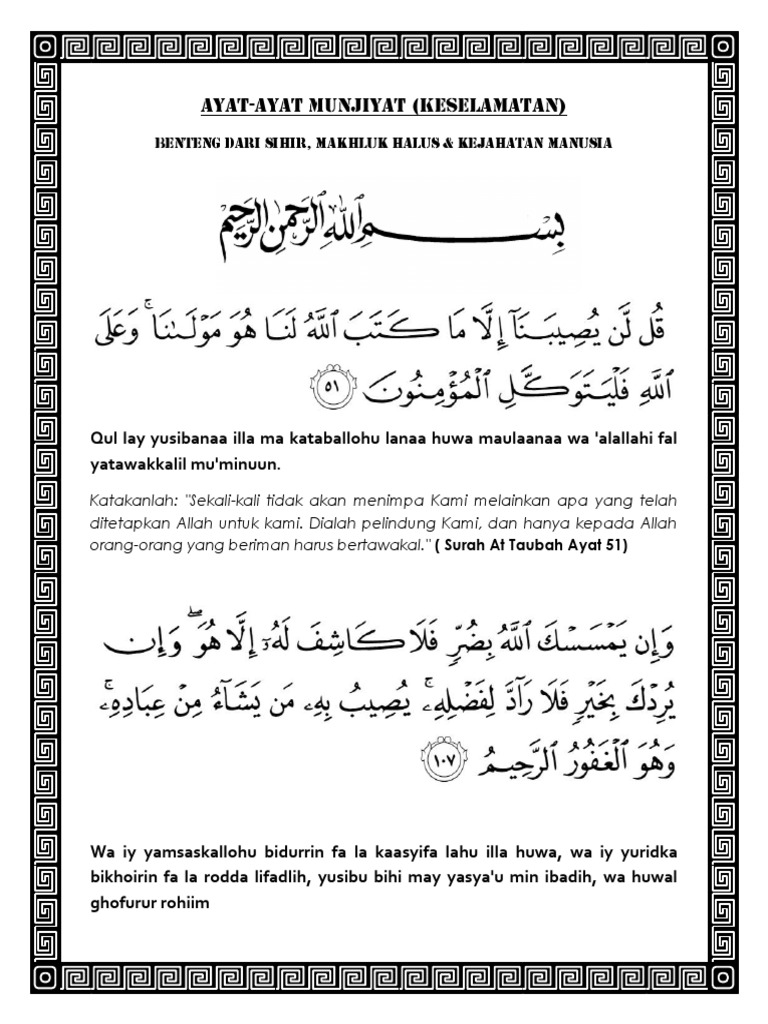 AYAT-AYAT MUNJIYAT (KESELAMATAN)
BENTENG DARI SIHIR, MAKHLUK HALUS & KEJAHATAN MANUSIA
بِسْمِ ٱللَّهِ ٱلرَّحْمَٰنِ ٱلرَّحِيمِ
قُل لَّن يُصِيبَنَآ إِلَّا مَا كَتَبَ ٱللَّهُ لَنَا هُوَ مَوْلَىٰنَا ۚ وَعَلَى
ٱللَّهِ فَلْيَتَوَكَّلِ ٱلْمُؤْمِنُونَ ٥١
Qul lay yusibanaa illa ma kataballohu lanaa huwa maulaanaa wa 'alallahi fal
yatawakkalil mu'minuun.
Katakanlah: "Sekali-kali tidak akan menimpa Kami melainkan apa yang telah
ditetapkan Allah untuk kami. Dialah pelindung Kami, dan hanya kepada Allah
orang-orang yang beriman harus bertawakal." ( Surah At Taubah Ayat 51)
وَإِن يَمْسَسْكَ ٱللَّهُ بِضُرٍّ فَلَا كَاشِفَ لَهُۥٓ إِلَّا هُوَ ۖ وَإِن
يُرِدْكَ بِخَيْرٍ فَلَا رَآدَّ لِفَضْلِهِۦ ۚ يُصِيبُ بِهِۦ مَن يَشَآءُ مِنْ عِبَادِهِۦ ۚ
وَهُوَ ٱلْغَفُورُ ٱلرَّحِيمُ ١٠٧
Wa iy yamsaskallohu bidurrin fa la kaasyifa lahu illa huwa, wa iy yuridka
bikhoirin fa la rodda lifadlih, yusibu bihi may yasya'u min ibadih, wa huwal
ghofurur rohiim